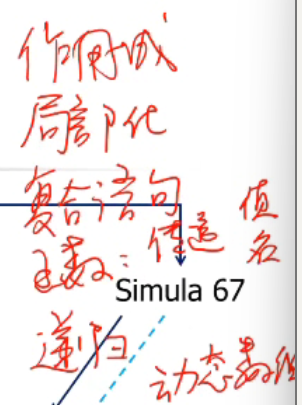 作用域
局部化
复合语句
函数：传递 值
名
Simula 67
递归
动态数组